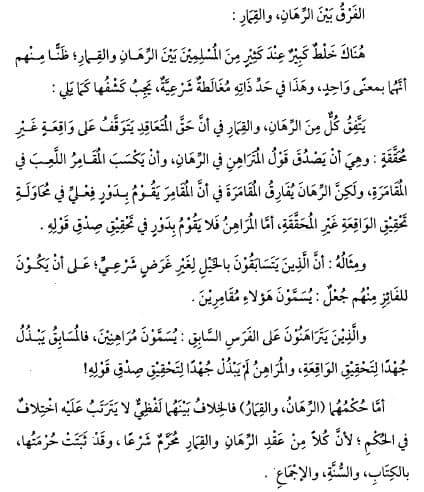 الفَرْقُ بَيْنَ الرِّهَانِ، والقِمَارِ :
هُنَاكَ خَلْطٌ كَبِيْرٌ عِنْدَ كَثِيْرٍ مِنَ المُسْلِمِيْنَ بَيْنَ الرِّهَـانِ والقِـمارِ؛ ظَنًّـا مِـنْهم
أنَّهُما بمعنًى وَاحِدٍ، وهَذَا في حَدِّ ذَاتِهِ مُغَالَطَةٌ شَرْعِيَّةٌ، يَجِبُ كَشْفُها كَمَا يَلي :
يَتَّفِقُ كُلٌّ مِنَ الرِّهَانِ، والقِمَارِ في أنَّ حَقَّ المُتَعاقِدِ يَتَوَقَّفُ عَلى وَاقِعَةٍ غَيْرِ
مُحَقَّقَةٍ : وهِيَ أنْ يَصْدُقَ قَوْلُ المُتَرَاهِنِ في الرِّهَانِ، وأنْ يَكْسَبَ المُقَامِرُ اللَّعِبَ في
المُقَامَرَةِ، ولَكِنَّ الرِّهَانَ يُفَارِقُ المُقَامَرَةَ في أنَّ المُقَامِرَ يَقُـوْمُ بِـدَوْرٍ فِعْـليٍّ في مُحَاوَلَـةِ
تَحْقِيْقِ الوَاقِعَةِ غَيْرِ المُحَقَّقَةِ، أمَّا المُرَاهِنُ فَلا يَقُوْمُ بِدَوْرٍ في تَحْقِيْقِ صِدْقِ قَوْلِهِ .
ومِثَالُهُ : أنَّ الَّذِينَ يَتَسَابَقُوْنَ بالخَيْلِ لِغَيْرِ غَرَضٍ شَرْعِـيٍّ؛ عَـلى أنْ يَكُـوْنَ
للفَائِزِ مِنْهُم جُعْلٌ : يُسَمَّوْنَ هَؤلاءِ مُقَامِرِيْنَ .
والَّذِينَ يَتَرَاهَنُوْنَ عَلى الفَرَسِ السَّابِقِ : يُسَمَّوْنَ مُرَاهِنِيْنَ، فالمُسَابِقُ يَبْـذُلُ
جُهْدًا لِتَحْقِيْقِ الوَاقِعَةِ، والمُرَاهِنُ لَمْ يَبْذُلْ جُهْدًا لِتَحْقِيْقِ صِدْقِ قَوْلِهِ!
أمَّا حُكْمُهُما (الرِّهَانُ، والقِمَارُ) فالخِلافُ بَيْنَهُما لَفْظِيٌّ لا يَتَرَتَّبُ عَلَيْهِ اخْتِلافٌ
في الحُكْمِ ؛ لأنَّ كُلاً مِنْ عَقْدِ الرِّهَانِ والقِمَارِ مُحَرَّمٌ شَرْعًا ، وقَدْ ثَبَتَتْ حُرْمَتُها،
بالكِتَابِ، والسُّنَّةِ، والإجْمَاعِ .